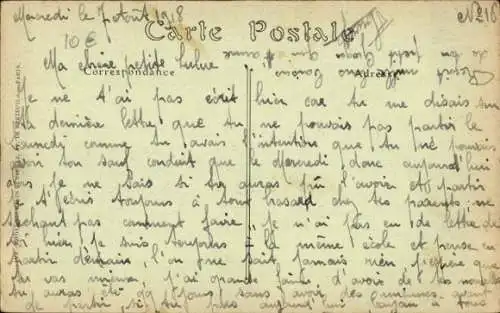 Mercredi le 7 Août 1918
N° 16
10€
Carte Postale
Ma chère petite Lulue
Correspondance
Adresse
Je ne t'ai pas écrit hier car tu me disais sur
ta dernière lettre que tu ne pouvais pas partir le
samedi comme tu avais l'intention que tu ne pouvais
avoir ton sauf conduit que le Mercredi donc aujourd'hui
je ne sais si tu auras pu l'avoir et partir
je t'écris toujours à tout hasard chez tes parents ne
sachant pas comment faire, je n'ai pas eu de lettre de
toi hier, je suis toujours à la même école et pense en
partir demain, l'on ne sait jamais rien j'espère que
tu vas mieux, j'ai grande faim d'avoir de tes nouvelles
tu auras été jours sans avoir des miennes
de partir, si tu pars aujourd'hui à tous